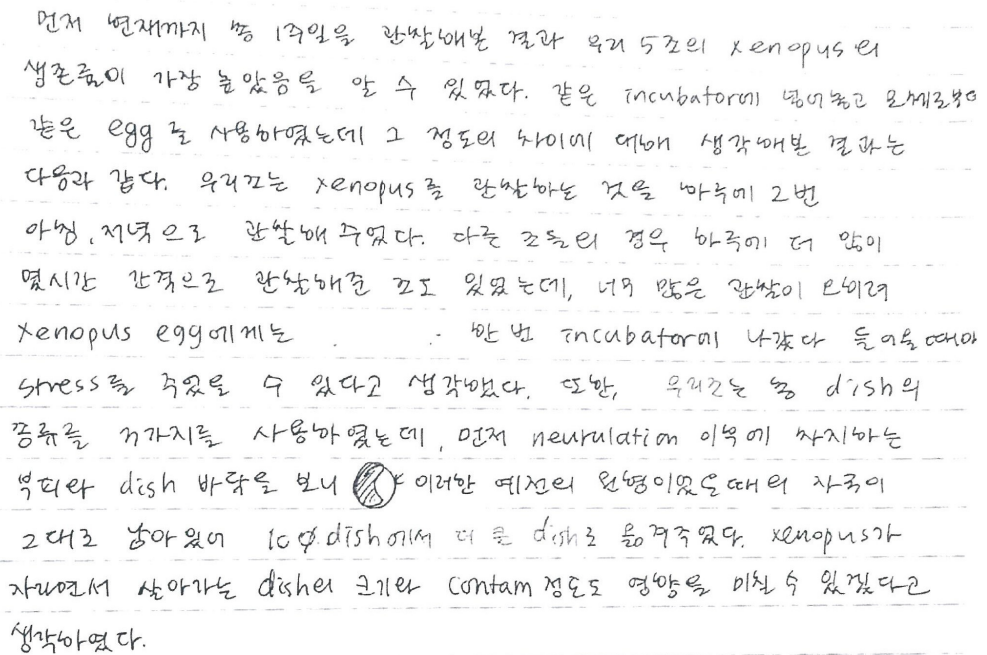 먼저 현재까지 총 1주일을 관찰해본 결과 우리 5조의 xenopus의
생존률이 가장 높았음을 알 수 있었다. 같은 incubator에 넣어놓고 모체로부터
같은 egg를 사용하였는데 그 정도의 차이에 대해 생각해본 결과는
다음과 같다. 우리조는 xenopus를 관찰하는 것을 하루에 2번
아침, 저녁으로 관찰해 주었다. 다른 조들의 경우 하루에 더 많이
몇시간 간격으로 관찰해준 조도 있었는데, 너무 많은 관찰이 오히려
xenopus egg에게는 한 번 incubator에 나갔다 들어올 때마다
stress를 주었을 수 있다고 생각했다. 또한, 우리조는 총 dish의
종류를 n가지를 사용하였는데, 먼저 neurulation 이후에 차지하는
부피와 dish 바닥을 보니 이러한 예전의 원형이었을때의 자국이
그대로 남아있어 10φ dish에서 더 큰 dish로 옮겨주었다. xenopus가
자라면서 살아가는 dish의 크기와 contam 정도도 영향을 미칠 수 있겠다고
생각하였다.